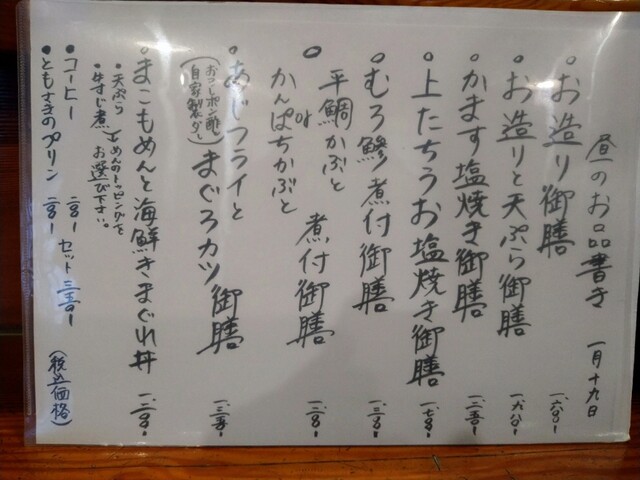 昼のお品書き 一月十九日
・お造り御膳 一、六〇〇ー
・お造りと天ぷら御膳 一、九八〇ー
・かます塩焼き御膳 一、三五〇ー
・上たちうお塩焼き御膳 一、七〇〇ー
・むろ鯵煮付御膳 一、三〇〇ー
平鯛かぶと
or
かんぱちかぶと
煮付御膳 一、二〇〇ー
・あじフライとまぐろカツ御膳 一、二五〇ー
(おろしポン酢
自家製だし)
・まこもめんと海鮮きまぐれ丼 一、二〇〇ー
・天ぷら
・牛すじ煮
とめんのトッピングを
お選び下さい。
・コーヒー 二〇〇ー セット三五〇ー
・ともさきのプリン 二〇〇ー
(税込価格)